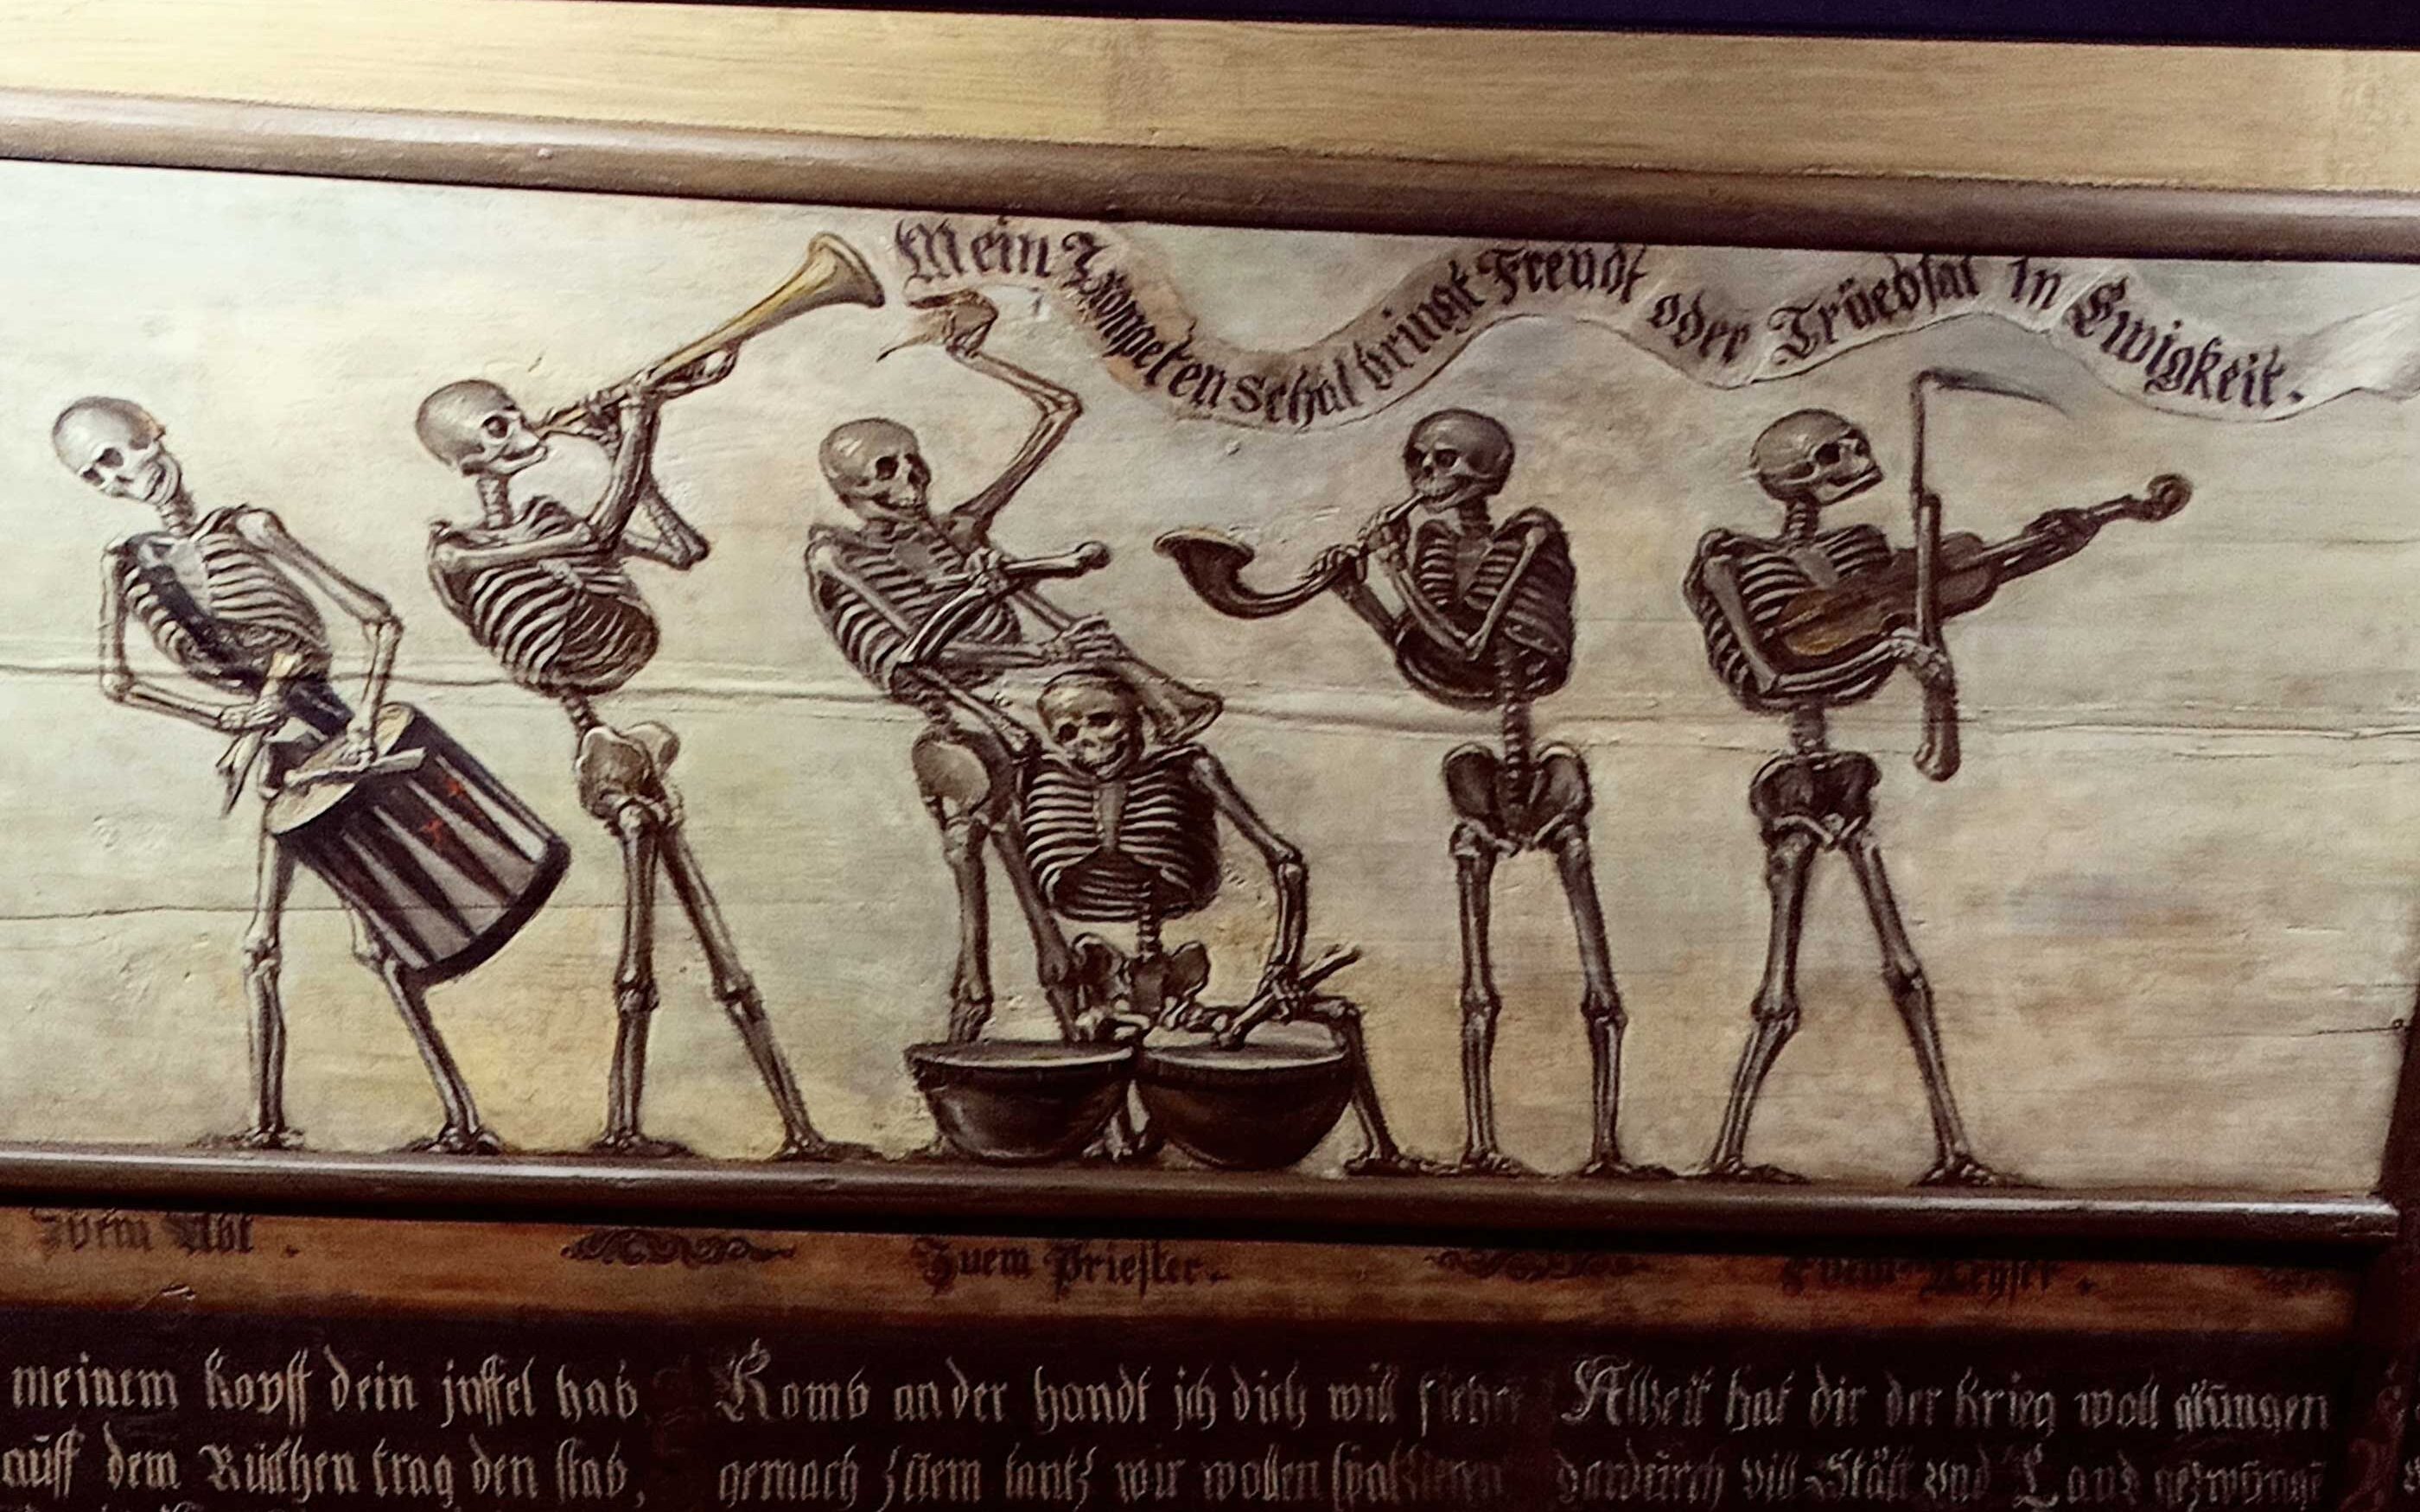 Mein Trompeten schal bringt Freudt oder Trüebsal in Ewigkeit.
Zuem Abt.
Zuem Priester.
Zuem
meinem kopff dein jnffel hab
auff dem Ruckhen trag den stab,
Komb an der handt jch dich will
gemach zuem tantz wir wollen spatzieren
Allzeit hat dir der krieg woll glungen
dardurch vill Stätt vnd Land